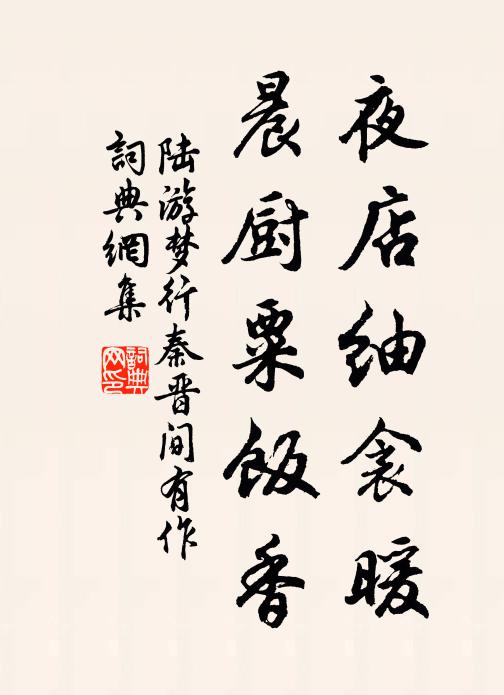 夜店紬衾暖
晨厨粟飯香
陆游梦行秦晋间有作
詞典網集
詞典网印